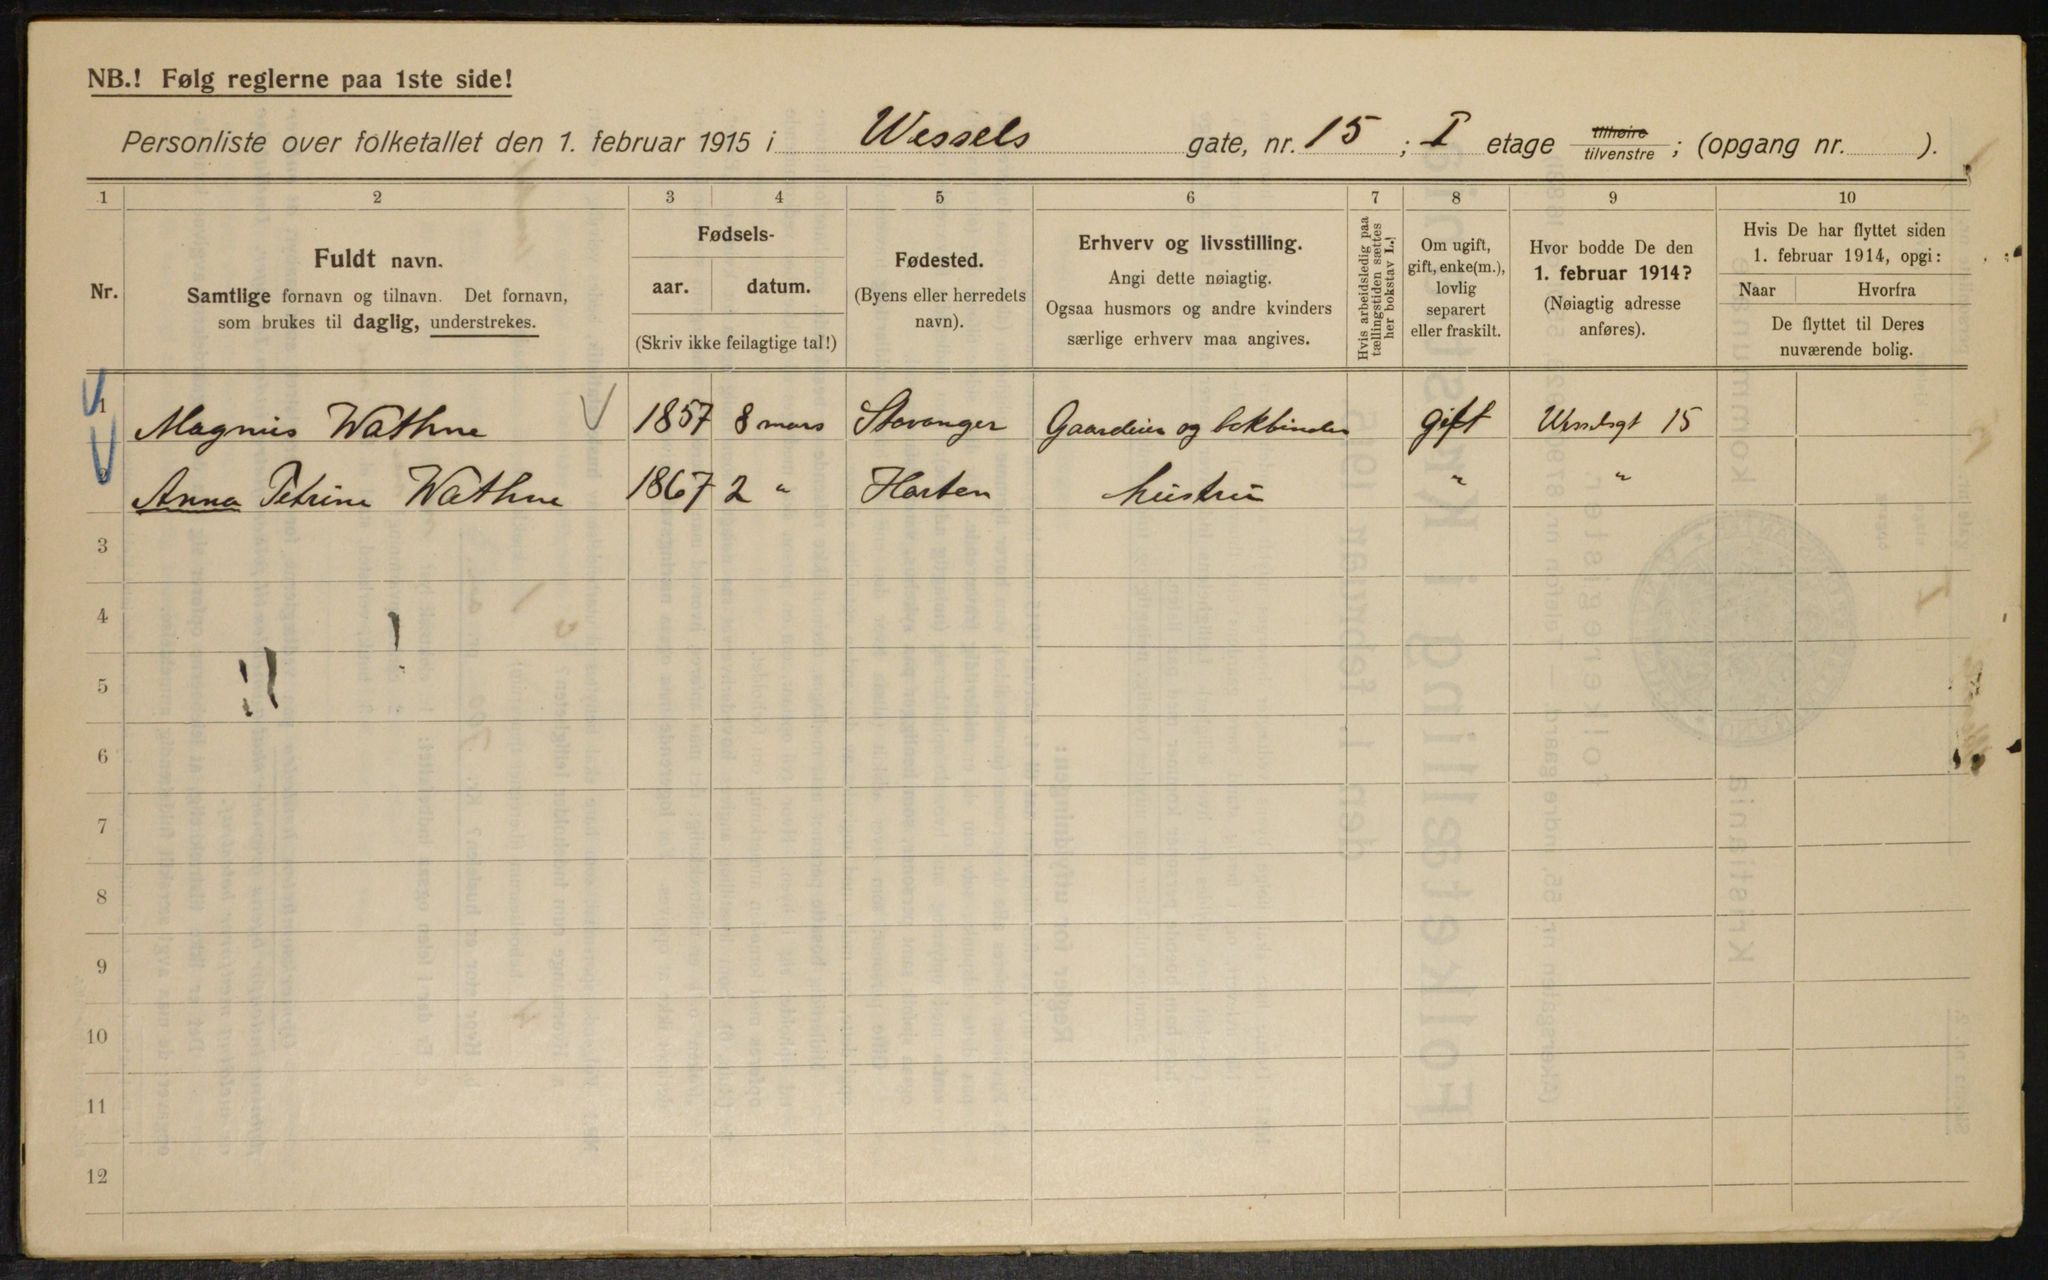 NB.! Følg reglerne paa 1ste side!
Personliste over folketallet den 1. februar 1915 i Wessels gate, nr. 15 ; I etage tilhøire tilvenstre ; (opgang nr. ).
1 2 3 4 5 6 7 8 9 10
Nr.
Fuldt navn.
Samtlige fornavn og tilnavn. Det fornavn,
som brukes til daglig, understrekes.
Fødsels-
aar. datum.
(Skriv ikke feilagtige tal!)
Fødested.
(Byens eller herredets
navn).
Erhverv og livsstilling.
Angi dette nøiagtig.
Ogsaa husmors og andre kvinders
særlige erhverv maa angives.
Hvis arbeidsledig paa
tællingstiden sættes
her bokstav L.!
Om ugift,
gift, enke(m.),
lovlig
separert
eller fraskilt.
Hvor bodde De den
1. februar 1914?
(Nøiagtig adresse
anføres).
Hvis De har flyttet siden
1. februar 1914, opgi:
Naar Hvorfra
De flyttet til Deres
nuværende bolig.
1 Magnus Wathne 1857 8 mars Stavanger Gaardeier og bokbinder gift Wesselsgt 15
2 Anna Petrine Wathne 1867 2 " Horten hustru " "
3
4
5
6
7
8
9
10
11
12